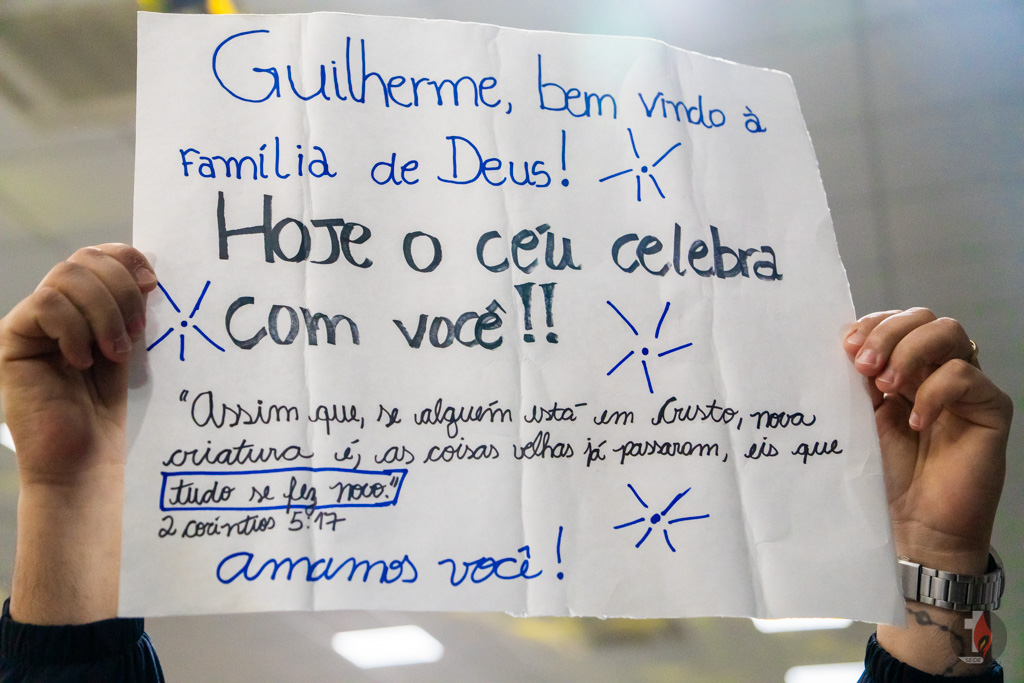 Guilherme, bem vindo à
família de Deus!
Hoje o céu celebra
com você!!
"Assim que, se alguém está em Cristo, nova
criatura é, as coisas velhas já passaram, eis que
tudo se fez novo."
2 coríntios 5:17
amamos você!
SEDE